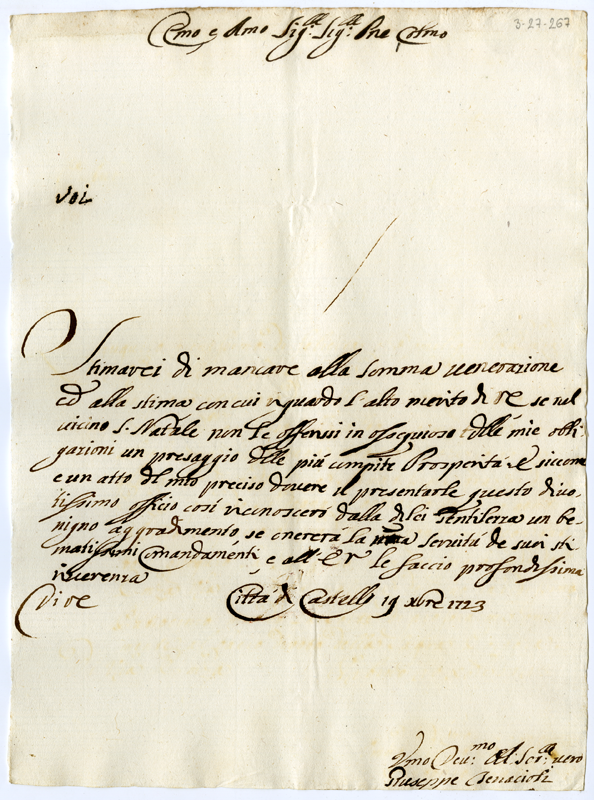 3-27-267
Emo e Rmo Sig:re Sig:re Pne Colmo
Stimarei di mancare alla somma venerazione
ed alla stima con cui riguardo l'alto merito di VE se nel
vicino S. Natale non le offerissi in ossequioso delle mie obli-
gazioni un presaggio delle più compite Prosperità. E siccome
e un atto del mio preciso dovere il presentarle questo divo-
tissimo officio così riconoscerò dalla di lei gentilezza un be-
nigno aggradimento, se onorerà la mia servitù de suoi sti-
matissimi Comandamenti, e all'E V le faccio profondissima
riverenza
Di VE Città di Castello 19 Xbre 1723
Vmo Deu:mo Obl: Ser:re vero
Giuseppe